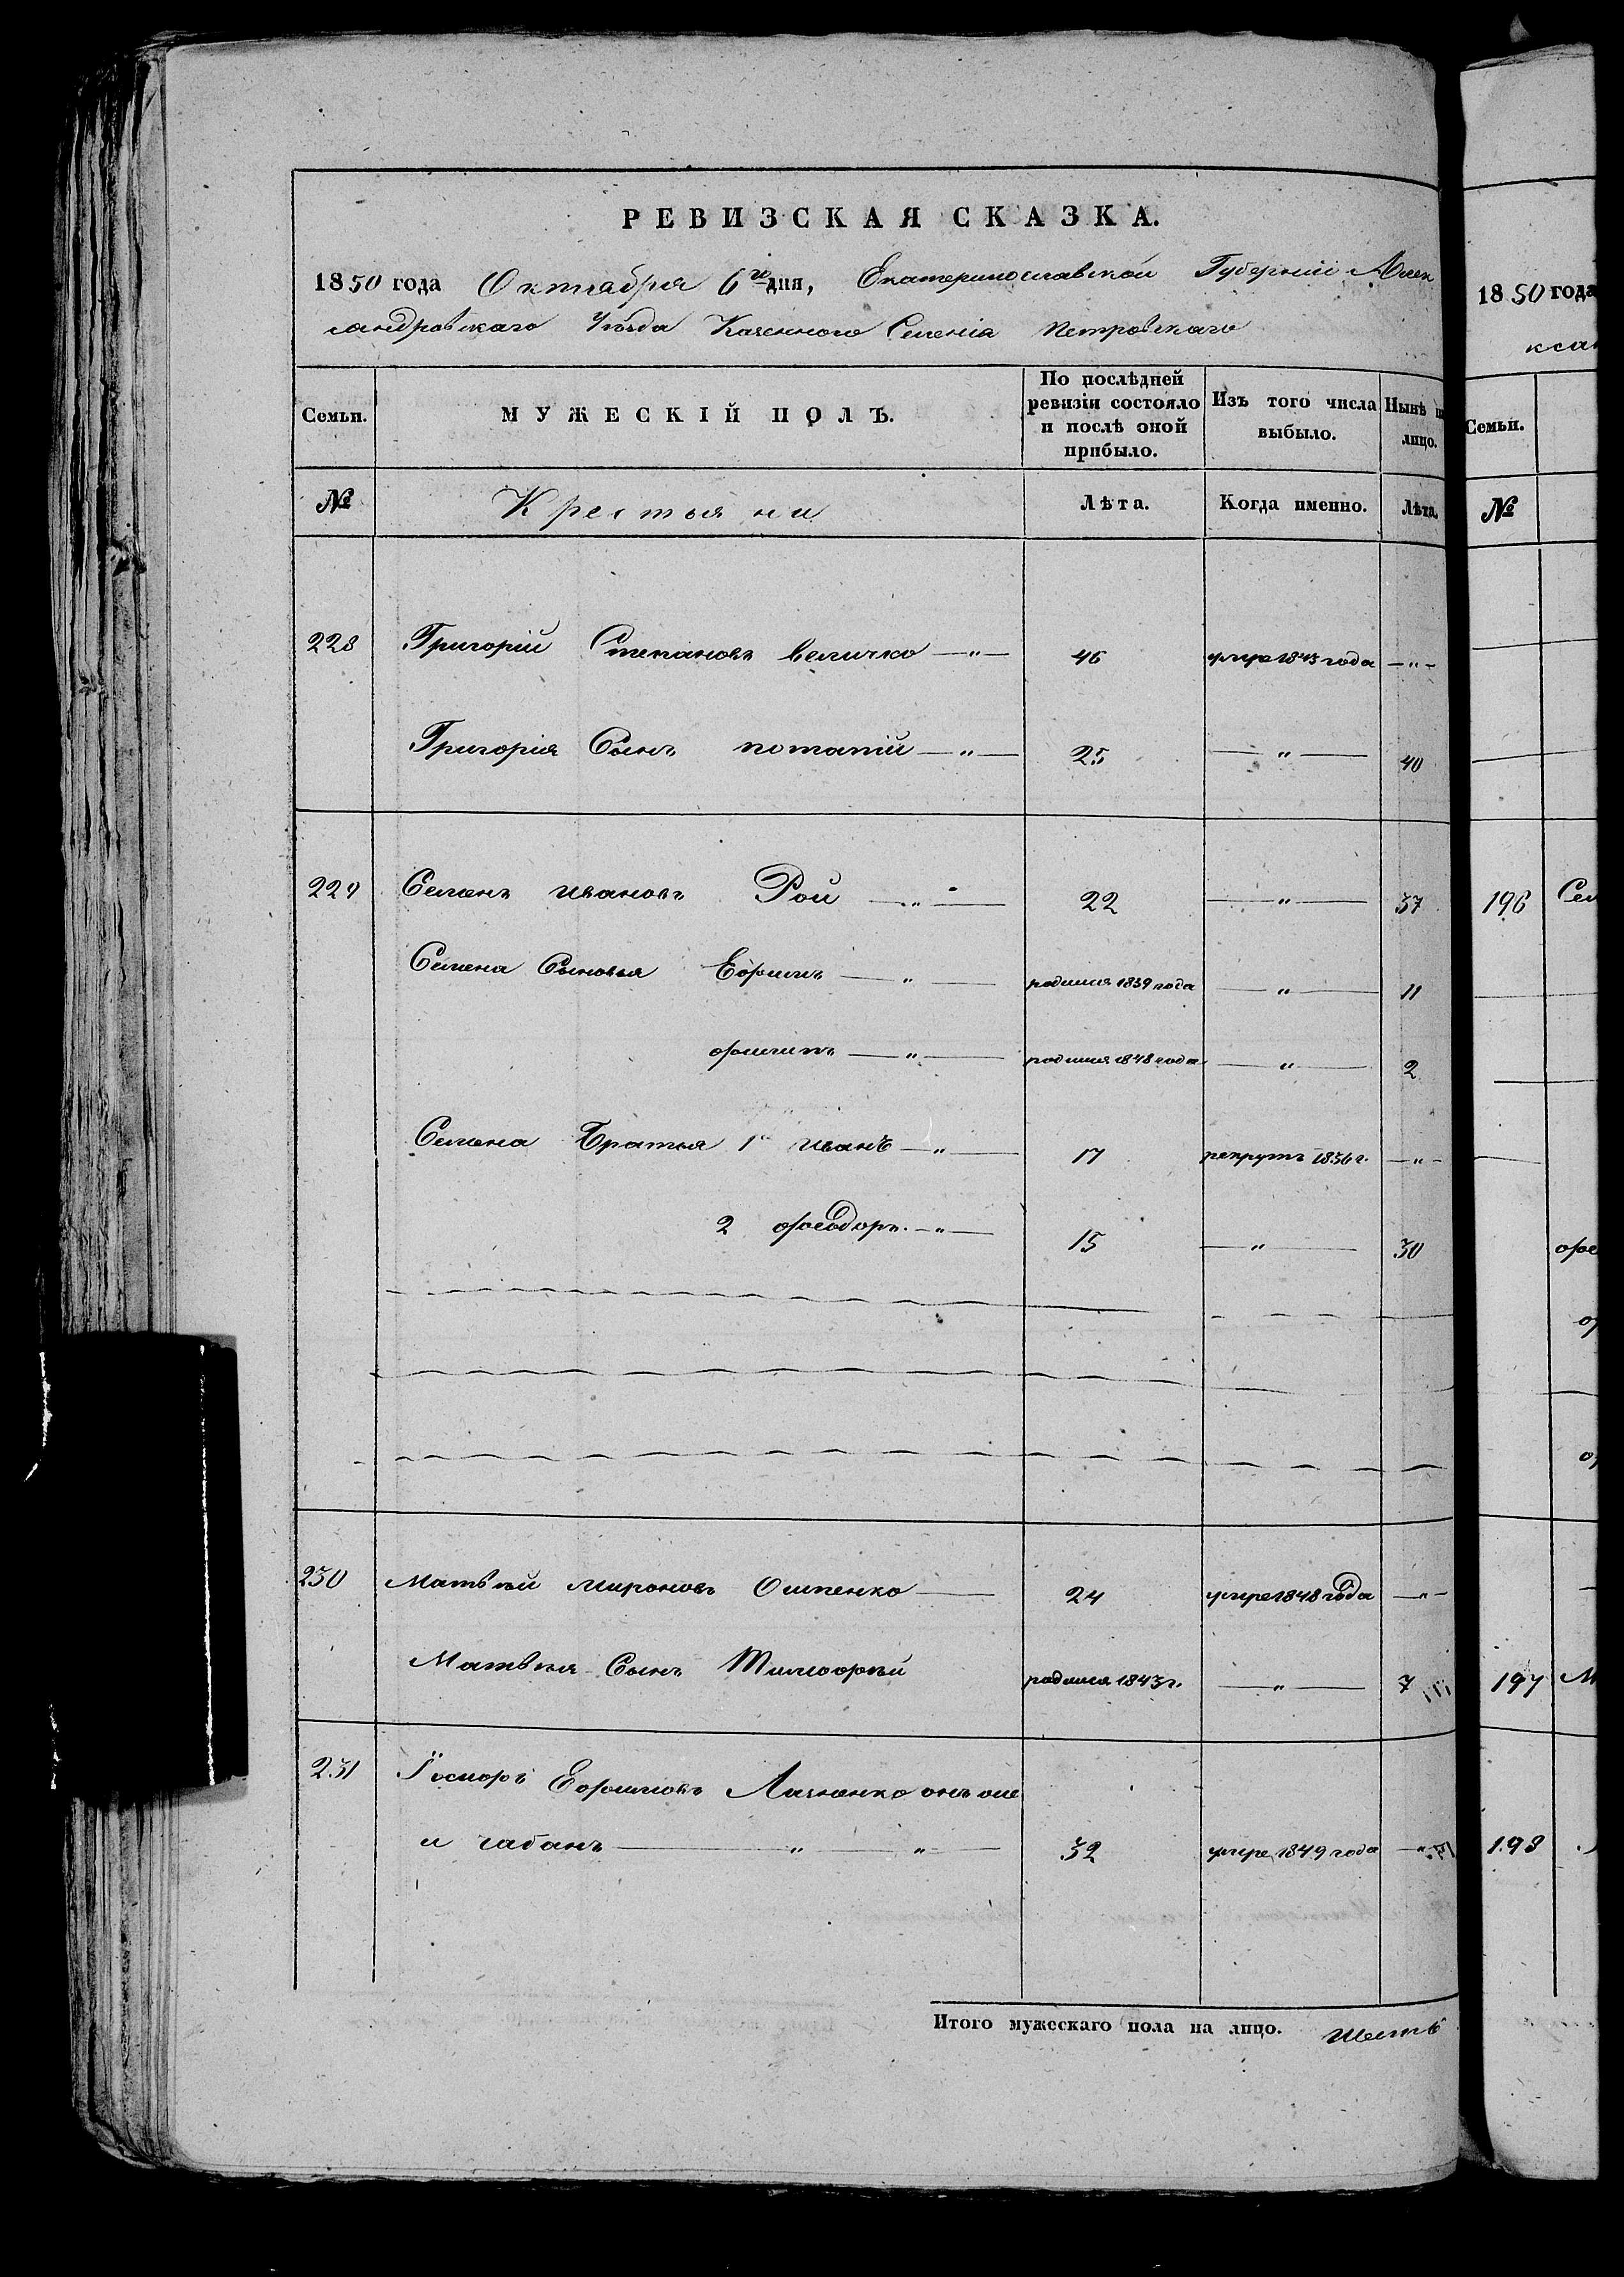 РЕВИЗСКАЯ СКАЗКА.
1850 года Октября 6го дня, Екатеринославской Губернии Алек
сандровскаго Уѣзда Казенного Селенія Петровскаго
Семьи. МУЖЕСКІЙ ПОЛЪ. По послѣдней ревизіи состояло и послѣ оной прибыло. Изъ того числа выбыло. Нынѣ на лицо.
№ Крестьяни Лѣта. Когда именно. Лѣта.
228 Григорій Степановъ Величко —"— 46 умре 1843 года —"—
Григорія Сынъ Потапій —"— 25 —"— 40
229 Семенъ Ивановъ Рой —"— 22 —"— 37
Семена Сыновья Ефимъ —"— родился 1839 года —"— 11
Филипъ —"— родился 1848 года —"— 2
Семена Братья 1й Иванъ —"— 17 рекрутъ 1836 г. —"—
2 Феодоръ. —"— 15 —"— 30
230 Матвѣй Мироновъ Ошпенко — 24 умре 1848 года —"—
Матвѣя Сынъ Тимофѣй родился 1843 г. —"— 7
231 Ефимовъ онъ же
и Чабанъ —"—"— 32 умре 1849 года —"—
Итого мужескаго пола на лицо. Шесть
1850 года
ксан
Семьи.
№
196 Сем
197 М
198